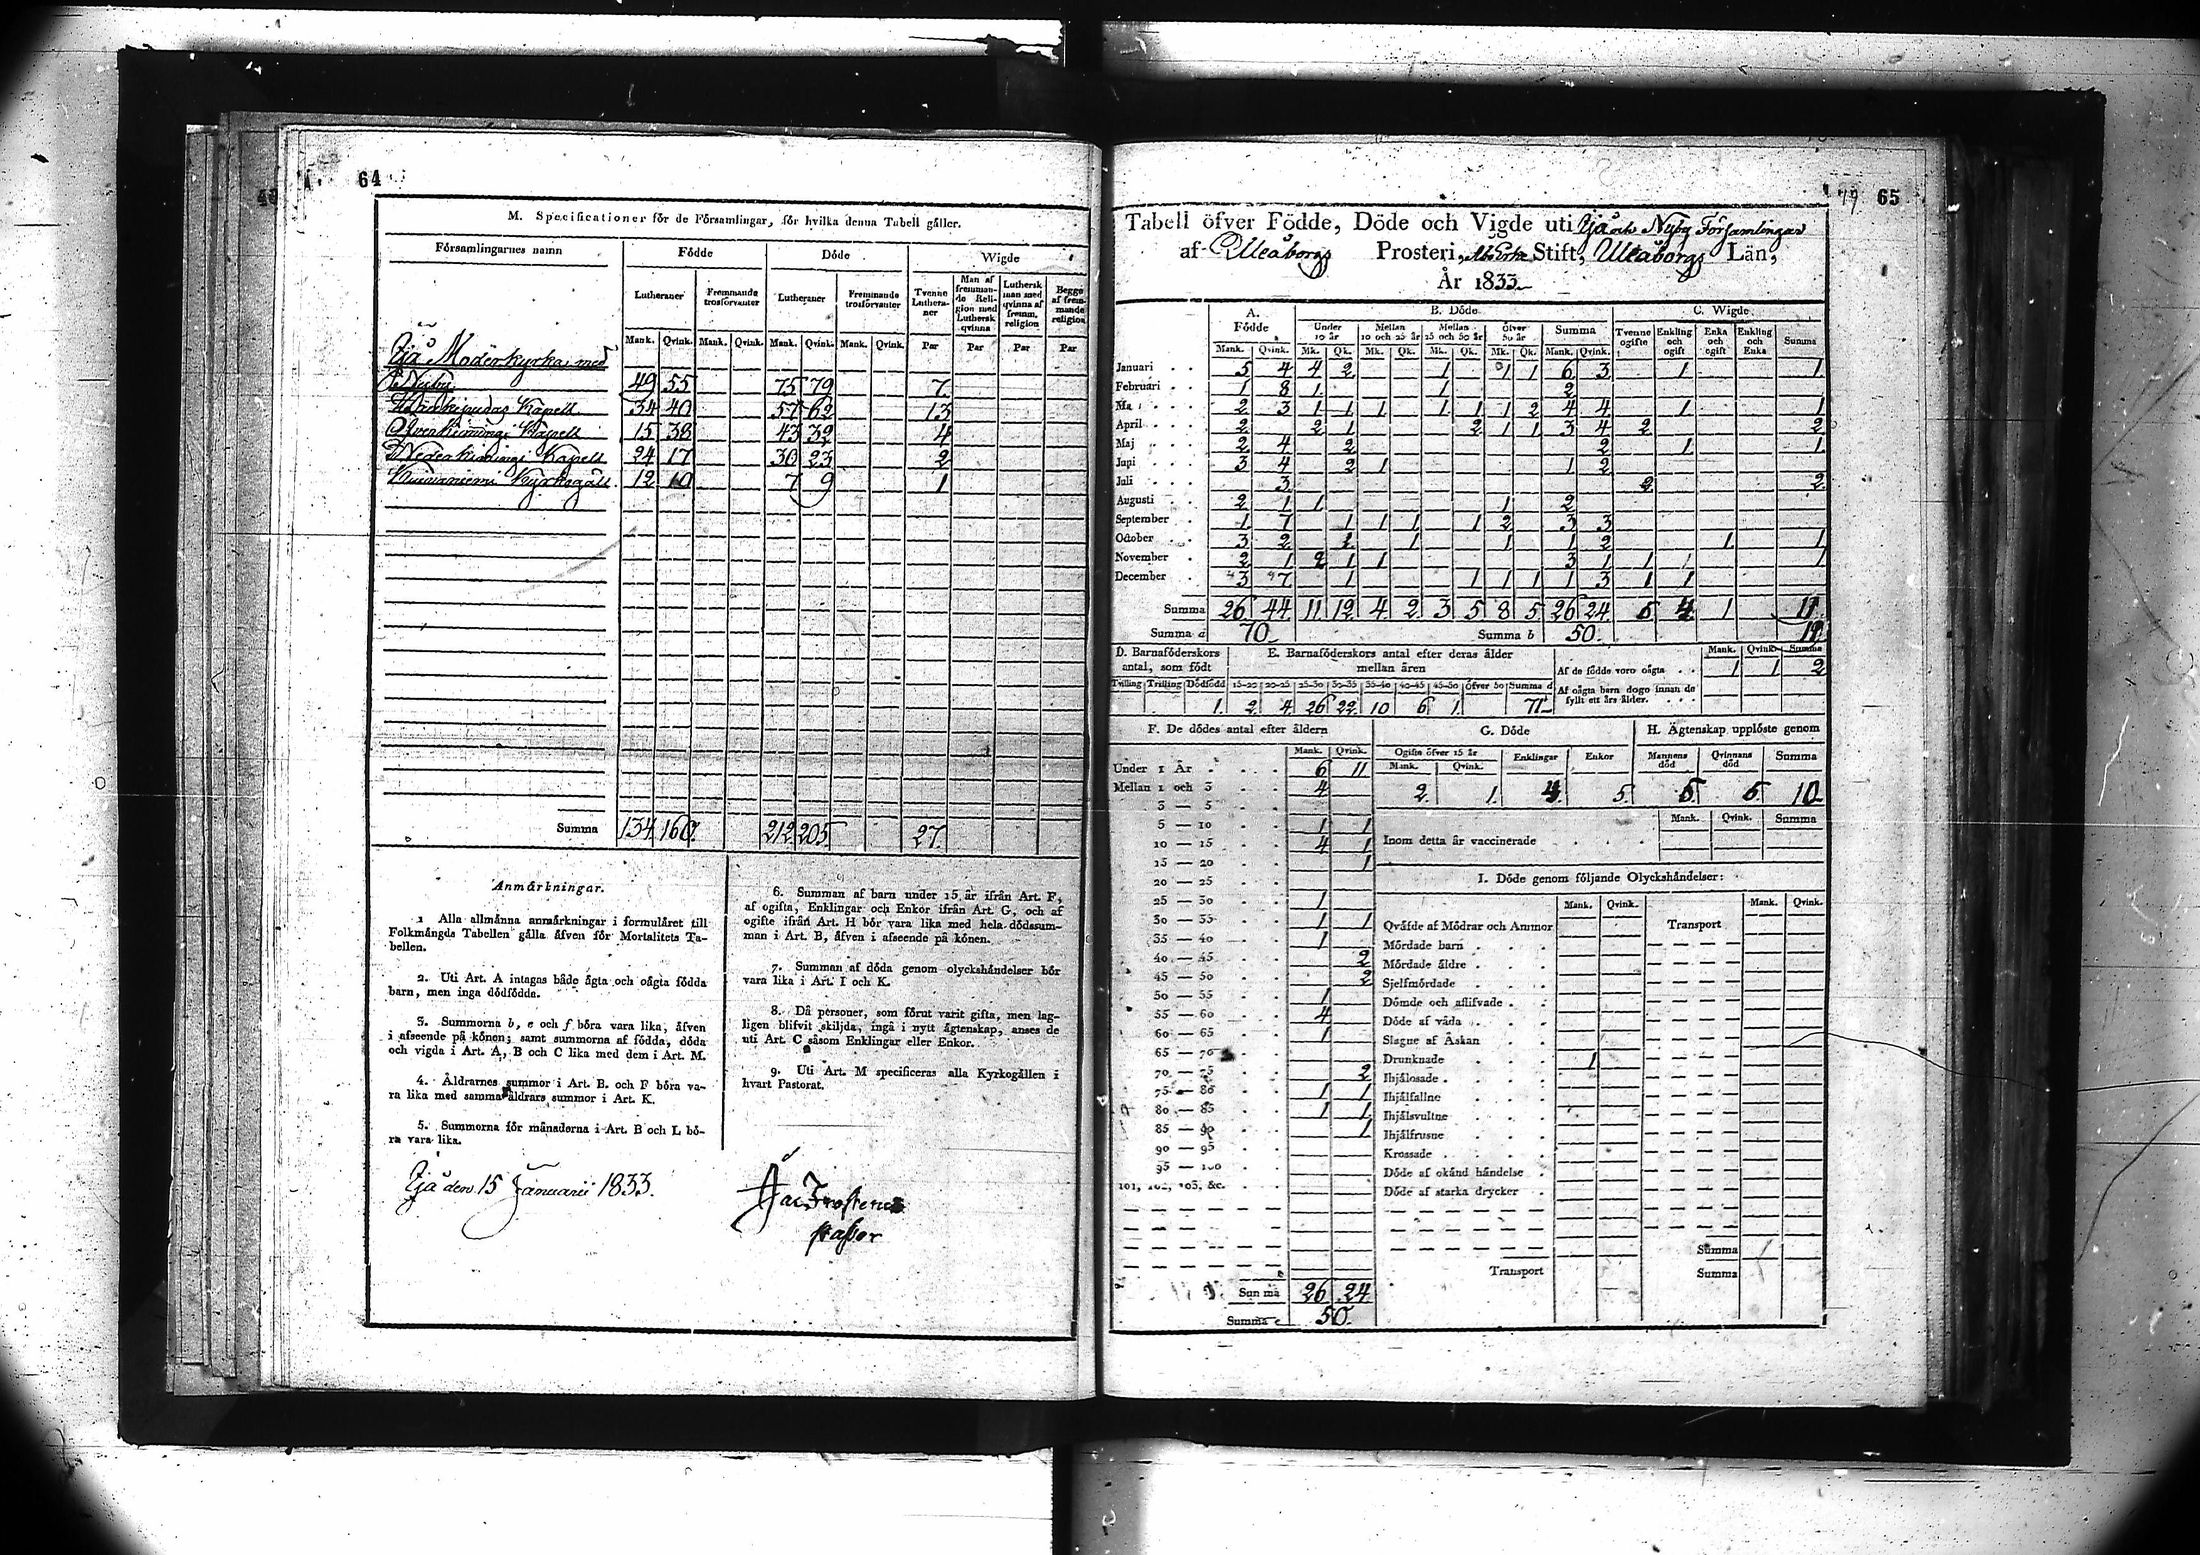 64
M. Specificationer för de Församlingar, för hvilka denna Tabell gäller.
Församlingarnes namn Födde Döde Wigde
Lutheraner Fremmande trosförvanter Lutheraner Fremmande trosförvanter Tvenne Lutheraner Man af fremmande Religion med Luthersk qvinna Luthersk man med qvinna af fremm. religion Begge af fremmande religion
Mank. Qvink. Mank. Qvink. Mank. Qvink. Mank. Qvink. Par Par Par Par
Ijå Moderkyrka med
Nyby 49 55 75 79 7.
Haukipudas Kapell 34 40 57 62 13
Öfverkiimingi Kapell 15 38 43 32 4
Nederkiimingi Kapell 24 17 30 23 2
Kuivaniemi Kyrkogäll 12 10 7 9 1
Summa 134 160. 212 205 27.
Anmärkningar.
1 Alla allmänna anmärkningar i formuläret till
Folkmängds Tabellen gälla äfven för Mortalitets Ta-
bellen.
2. Uti Art. A intagas både ägta och oägta födda
barn, men inga dödfödde.
3. Summorna b, e och f böra vara lika, äfven
i afseende på könen; samt summorna af födda, döda
och vigda i Art. A, B och C lika med dem i Art. M.
4. Åldrarnes summor i Art. B. och F böra va-
ra lika med samma åldrars summor i Art. K.
5. Summorna för månaderna i Art. B och L bö-
ra vara lika.
6. Summan af barn under 15 år ifrån Art. F,
af ogifta, Enklingar och Enkor ifrån Art. G, och af
ogifte ifrån Art. H bör vara lika med hela dödssum-
man i Art. B, äfven i afseende på könen.
7. Summan af döda genom olyckshändelser bör
vara lika i Art. I och K.
8. Då personer, som förut varit gifta, men lag-
ligen blifvit skiljda, ingå i nytt ägtenskap, anses de
uti Art. C såsom Enklingar eller Enkor.
9. Uti Art. M specificeras alla Kyrkogällen i
hvart Pastorat.
Ijå den 15 Januarii 1833.
Frosterus
pastor
79 65
Tabell öfver Födde, Döde och Vigde uti Ijå och Nyby Församlingar
af Uleåborgs Prosteri, Stift, Uleåborgs Län,
År 1833.
A. Födde B. Döde C. Wigde
Under 10 år Mellan 10 och 25 år Mellan 25 och 50 år Öfver 50 år Summa Tvenne ogifte Enkling och ogift Enka och ogift Enkling och Enka Summa
Mank. Qvink. Mk. Qk. Mk. Qk. Mk. Qk. Mk. Qk. Mank. Qvink.
Januari 5 4 4 2 1 1 1 6 3 1 1
Februari 1 8 1 1 2
Ma 2 3 1 1 1 1 1 1 2 4 4 1 1
April 2 2 1 2 1 1 3 4 2 2
Maj 2 4 2 2 1 1
Juni 3 4 2 1 1 2
Juli 3 2 2
Augusti 2 1 1 1 2
September 1 7 1 1 1 1 2 3 3
October 3 2 1 1 1 1 2 1 1
November 2 1 2 1 1 3 1 1 1
December 3 7 1 1 1 1 1 3 1 1
Summa 26 44 11 12 4 2 3 5 8 5 26 24 1 11
Summa a 70 Summa b 50
D. Barnaföderskors antal, som födt E. Barnaföderskors antal efter deras ålder mellan åren
Mank. Qvink. Summa
Af de födde voro oägta 1 1 2
Tvilling Trilling Dödfödd 15-20 20-25 25-30 30-35 35-40 40-45 45-50 öfver 50 Summa d
Af oägta barn dogo innan de fyllt ett års ålder.
1. 2. 4. 26 22 10 6 1. 71
F. De dödes antal efter åldern G. Döde H. Ägtenskap upplöste genom
Mank. Qvink. Ogifta öfver 15 år Mank. Qvink. Enklingar Enkor Mannens död Qvinnans död Summa
2. 1. 4. 5. 5. 5. 10
Under 1 År 6 11
Mellan 1 och 3 4
3 — 5
5 — 10 1 1
10 — 15 4 1
15 — 20 1
20 — 25
25 — 30 1
30 — 35 1 1
35 — 40 1
40 — 45 2
45 — 50 2
50 — 55 1
55 — 60 4
60 — 65 1
65 — 70
70 — 75 2
75 — 80 1 1
80 — 85 1 1
85 — 90 1
90 — 95
95 — 100
101, 102, 103, &c.
Summa 26 24
Summa 50.
Mank. Qvink. Summa
Inom detta år vaccinerade
I. Döde genom följande Olyckshändelser:
Mank. Qvink. Mank. Qvink.
Qväfde af Mödrar och Ammor Transport
Mördade barn
Mördade äldre
Sjelfmördade
Dömde och aflifvade
Döde af våda
Slagne af Åskan
Drunknade 1
Ihjälosade
Ihjälfallne
Ihjälsvultne
Ihjälfrusne
Krossade
Döde af okänd händelse
Döde af starka drycker
Summa 1
Transport Summa